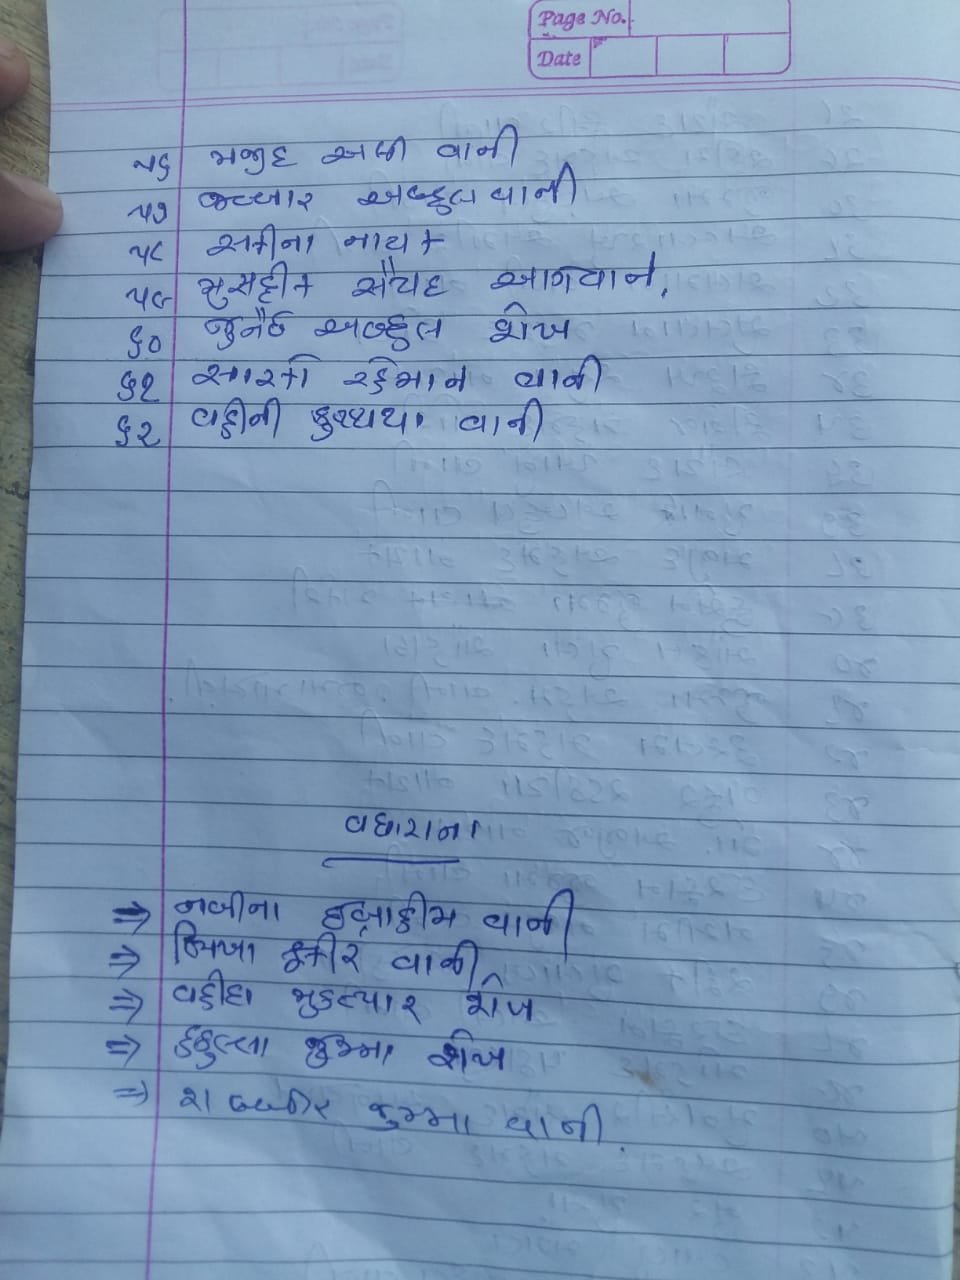 Page No.
Date
૫૬ મજીદ અલી વાની
૫૭ જબ્બાર અબ્દુલ વાની
૫૮ સકીના નાયક
૫૯ મુસદ્દીક સૈયદ આગવાન.
૬૦ જુનૈદ અબ્દુલ શેખ
૬૧ આરકી રહેમાન વાની
૬૨ વહીની વાની
વધારાના
⇒ નબીના ઇબ્રાહીમ વાની
⇒ વાની
⇒ વહીદા મુક્ત્યાર શેખ
⇒ જુમ્મા શેખ
⇒ શબ્બીર જુમ્મા વાની.